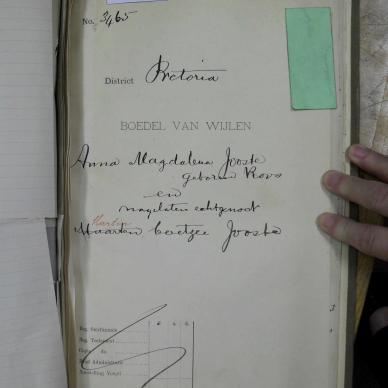 No. 3465
District Pretoria
BOEDEL VAN WIJLEN
Anna Magdalena Jooste
geboren Roos
en
nagelaten echtgenoot
Martin
Maarten Coetzee Jooste
Reg. Testament